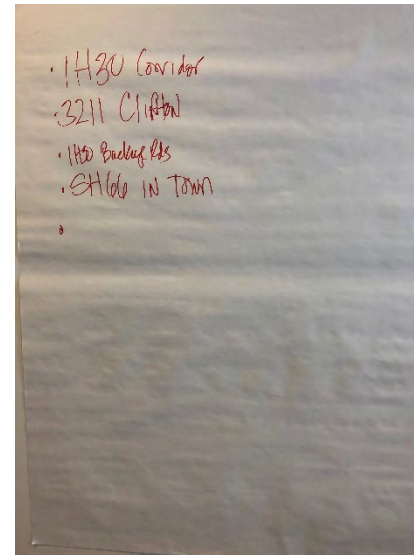 · IH30 Corridor
· 3211 Clifton
· IH30 Backup Rds
· SH66 IN TOWN
·